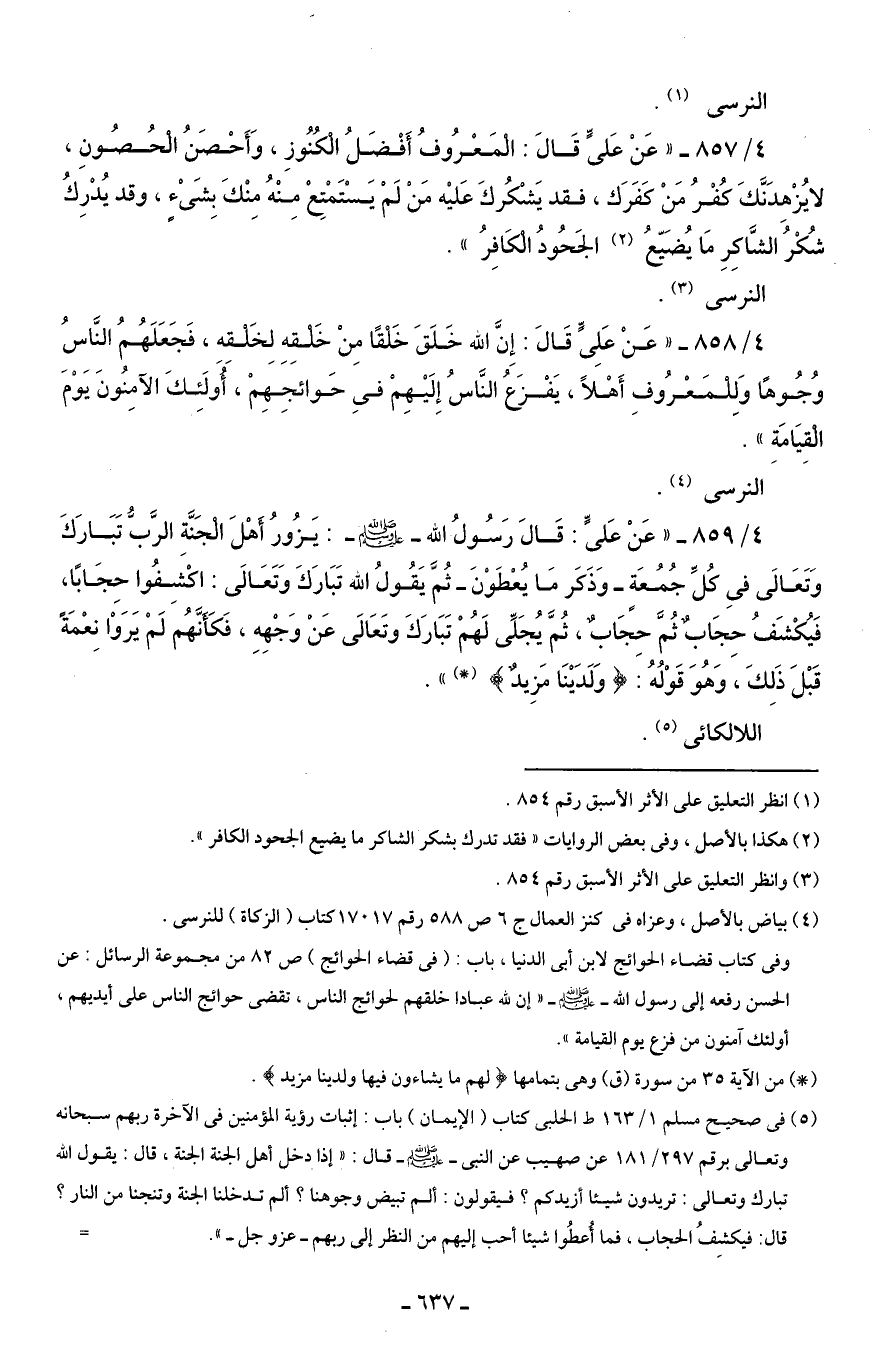 النرسى (١) .
٤/ ٨٥٧ ـ « عَنْ عَلىٍّ قَـالَ : الْمَعْرُوفُ أَفْضَلُ الْكُنُوزِ ، وَأَحْصَنُ الْحُصُونِ ،
لايُزْهِدَنَّكَ كُفْرُ مَنْ كَفَرَكَ ، فـقد يَشْكُركَ عَلَيْه مَنْ لَمْ يَسْتَمْتِعْ مِنْهُ مِنْكَ بِشَىْءٍ ، وقد يُدْرِكُ
شُكْرُ الشَّاكِرِ مَا يُضَيِّعُ (٢) الجَحُودُ الْكَافِرُ » .
النرسى (٣) .
٤/ ٨٥٨ ـ « عَـنْ عَلىٍّ قَـالَ : إِنَّ الله خَـلَقَ خَلْقًا مِنْ خَلْقِه لخَلْقِه ، فَجَعَلَهُـمُ النَّاسُ
وُجُـوهًا وَللْـمَعْـرُوفِ أَهْـلاً ، يَفْـزَعُ النَّاسُ إِلَيْـهِمْ فـى حَـوائجِـهِمْ ، أُولَئِـكَ الآمنُونَ يَوْمَ
الْقِيَامَةِ » .
النرسى (٤) .
٤/ ٨٥٩ ـ « عَنْ عَلىٍّ : قَـالَ رَسُـولُ الله ـ ﷺ ـ : يَـزُورُ أَهْلَ الْجَنَّة الرَّبُّ تَبَـارَكَ
وَتَعَالَى فى كُلِّ جُمُعَةٍ ـ وَذَكَر مَا يُعْطَوْنَ ـ ثُمَّ يَقُولُ الله تَبَارَكَ وَتَعَـالَى : اكْشِـفُوا حجَـابًا،
فَيُكْشَفُ حِجَابٌ ثُمَّ حِجَابٌ ، ثُمَّ يُجلَّى لَهُمْ تَبَارَكَ وتَعَالَى عَنْ وَجْهِهِ ، فَكَأَنَّهُم لَمْ يَرَوْا نِعْمَةً
قَبْلَ ذَلِكَ ، وَهُوَ قَوْلُهُ : ﴿ وَلَدَيْنَا مَزِيدٌ ﴾ (*) » .
اللالكائى (٥) .
(١) انظر التعليق على الأثر الأسبق رقم ٨٥٤ .
(٢) هكذا بالأصل ، وفى بعض الروايات « فقد تدرك بشكر الشاكر ما يضيع الجحود الكافر ».
(٣) وانظر التعليق على الأثر الأسبق رقم ٨٥٤ .
(٤) بياض بالأصل ، وعزاه فى كنز العمال ج ٦ ص ٥٨٨ رقم ١٧٠١٧ كتاب ( الزكاة ) للنرسى .
وفى كتاب قضـاء الحوائج لابن أبى الدنيا ، باب : ( فى قضاء الحوائج ) ص ٨٢ من مجموعة الرسائل : عن
الحسن رفعه إلى رسول الله ـ ﷺ ـ « إن لله عبـادا خلقهم لحوائج الناس ، تقضى حوائج الناس على أيديهم ،
أولئك آمنون من فزع يوم القيامة ».
(*) من الآية ٣٥ من سورة (ق) وهى بتمامها ﴿ لهم ما يشاءون فيها ولدينا مزيد ﴾ .
(٥) فى صحيح مسلم ١/ ١٦٣ ط الحلبى كتاب ( الإيمـان ) باب : إثبات رؤية المؤمنين فى الآخرة ربهم سـبحانه
وتعـالى برقم ٢٩٧/ ١٨١ عن صهيب عن النبى ـ ﷺ ـ قـال : « إذا دخل أهل الجنة الجنة ، قال : يقول الله
تبارك وتعـالى : تريدون شيـئا أزيدكم ؟ فيقولون : ألـم تبيض وجوهنا ؟ ألم تـدخلنا الجنة وتنجنا من النار ؟
قال: فيكشفُ الحجاب ، فما أُعطُوا شيئا أحب إليهم من النظر إلى ربهم ـ عزو جل ـ ». =
ـ ٦٣٧ ـ